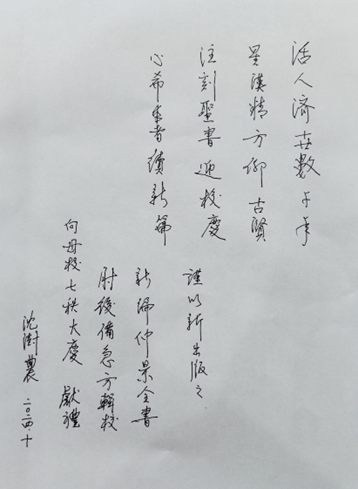 活人濟世數千年
星漢精方仰古賢
注刻聖書迎校慶
心希來者續新篇
謹以新出版之
新編仲景全書
肘後備急方輯校
向母校七秩大慶 獻禮
沈澍農
二〇二四.十